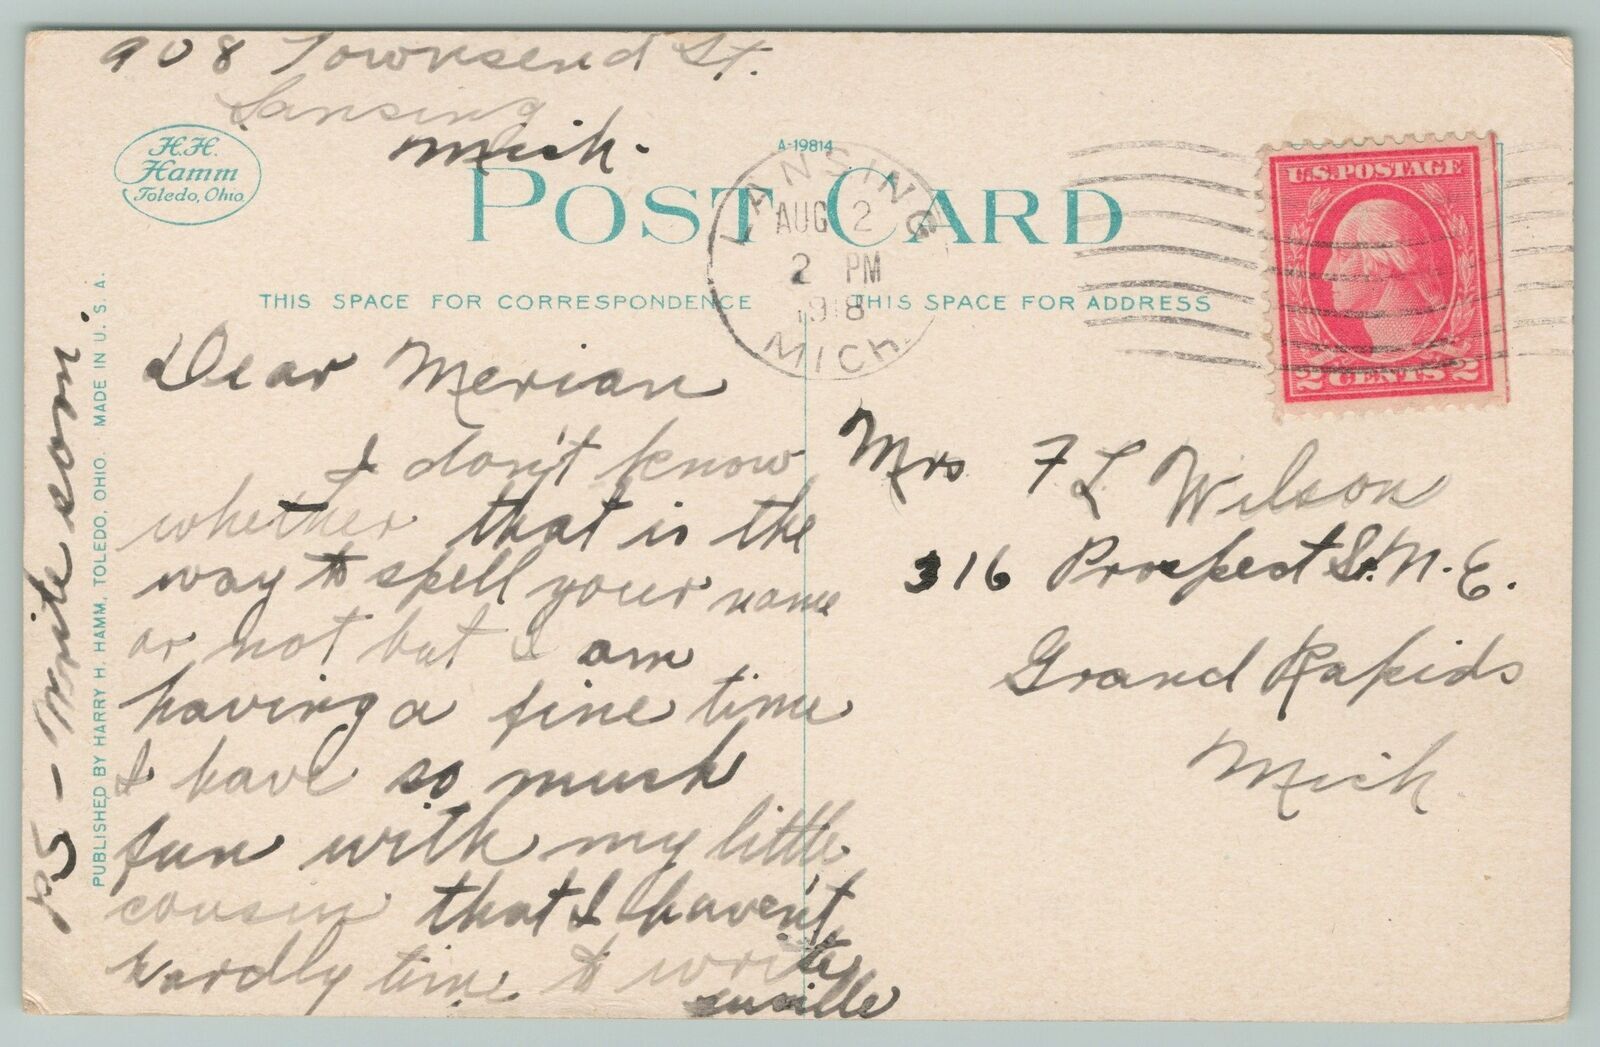 908 Townsend St.
Lansing
Mich.
H.H.
Hamm
Toledo, Ohio
A-19814
POST CARD
LANSING
AUG 2
2 PM
1918
MICH.
U.S. POSTAGE
2 CENTS 2
THIS SPACE FOR CORRESPONDENCE
THIS SPACE FOR ADDRESS
Dear Merian
I don't know
whether that is the
way to spell your name
or not but I am
having a fine time
I have so much
fun with my little
cousin that I haven't
hardly time to write
Mrs F L Wilson
316 Prospect St. N.E.
Grand Rapids
Mich
PS - Write soon.
PUBLISHED BY HARRY H. HAMM, TOLEDO, OHIO. MADE IN U.S.A.